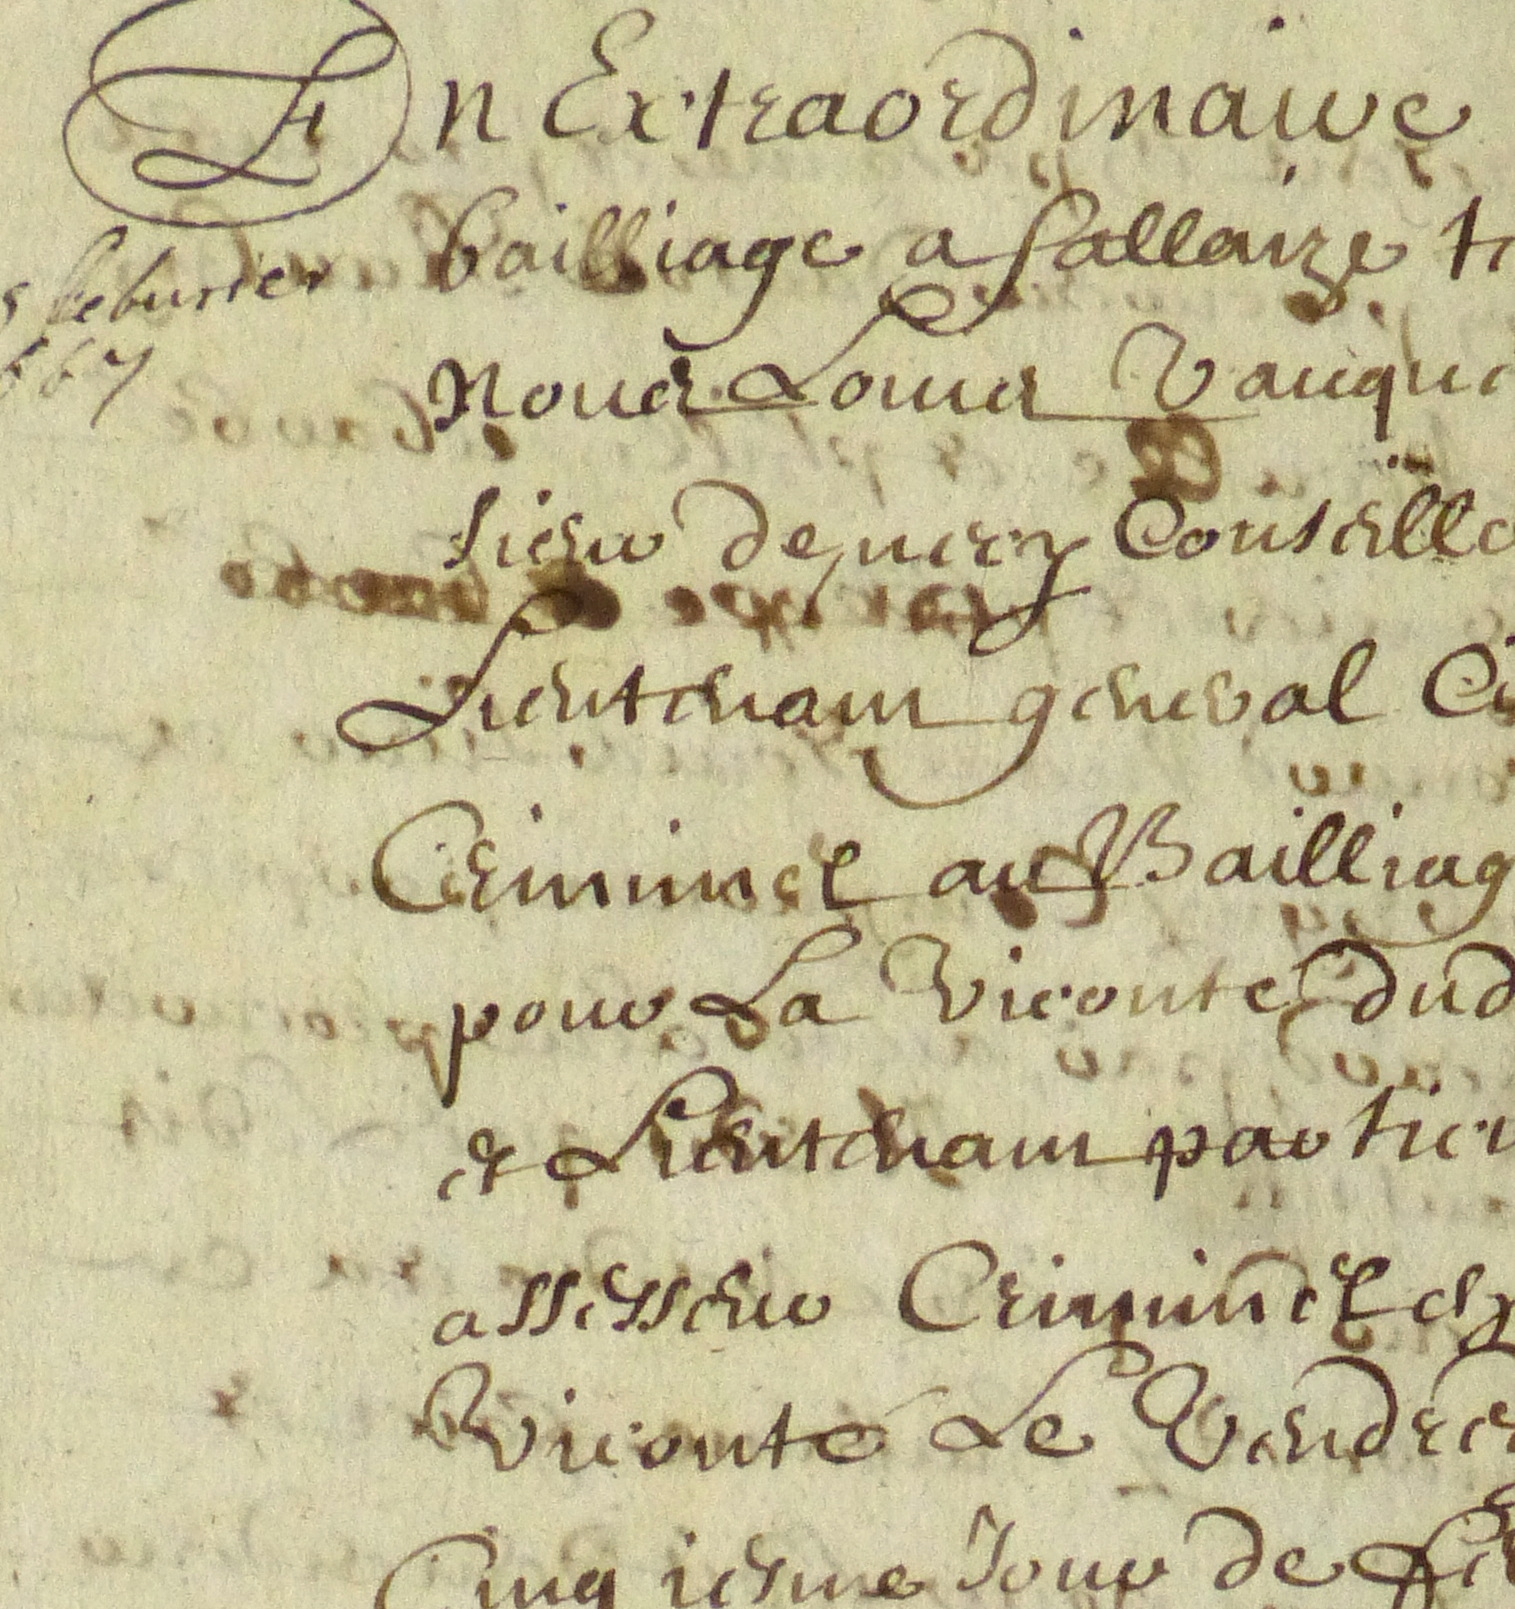 En Extraordinaire
bailliage a fallaize te
5 feburier
667
Nous Louis Vauque
sieur de nery Conseille
Lieutenant general Ci
Criminel au Bailliag
pour La Viconte dud
et Lieutenant particu
assesseur Criminel e
Viconté Le Vendre
Cinq iesme Jour de Fe